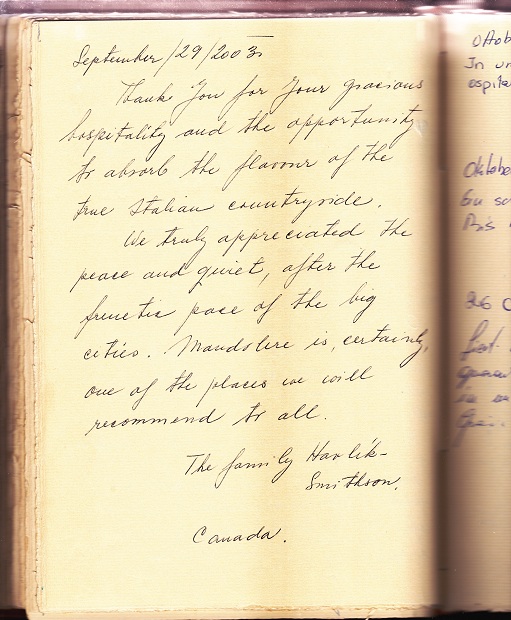 September/29/2003.
Thank You for Your gracious
hospitality and the opportunity
to absorb the flavour of the
true Italian countryside.
We truly appreciated the
peace and quiet, after the
frenetic pace of the big
cities. Mandolere is, certainly,
one of the places we will
recommend to all.
The family Havlik-
Smithson.
Canada.
In